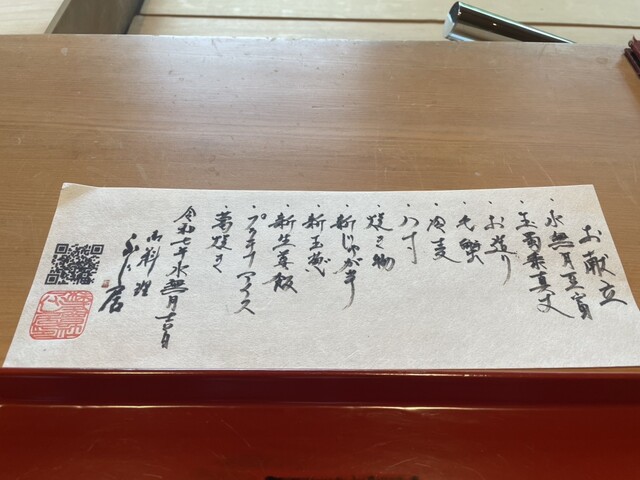 お献立
・水無月豆腐
・玉蜀黍真丈
・お造り
・毛蟹
・冷麦
・八寸
・焼き物
・新じゃが芋
・新玉葱
・新生姜飯
・アイス
令和七年水無月
御料理
ふじ居